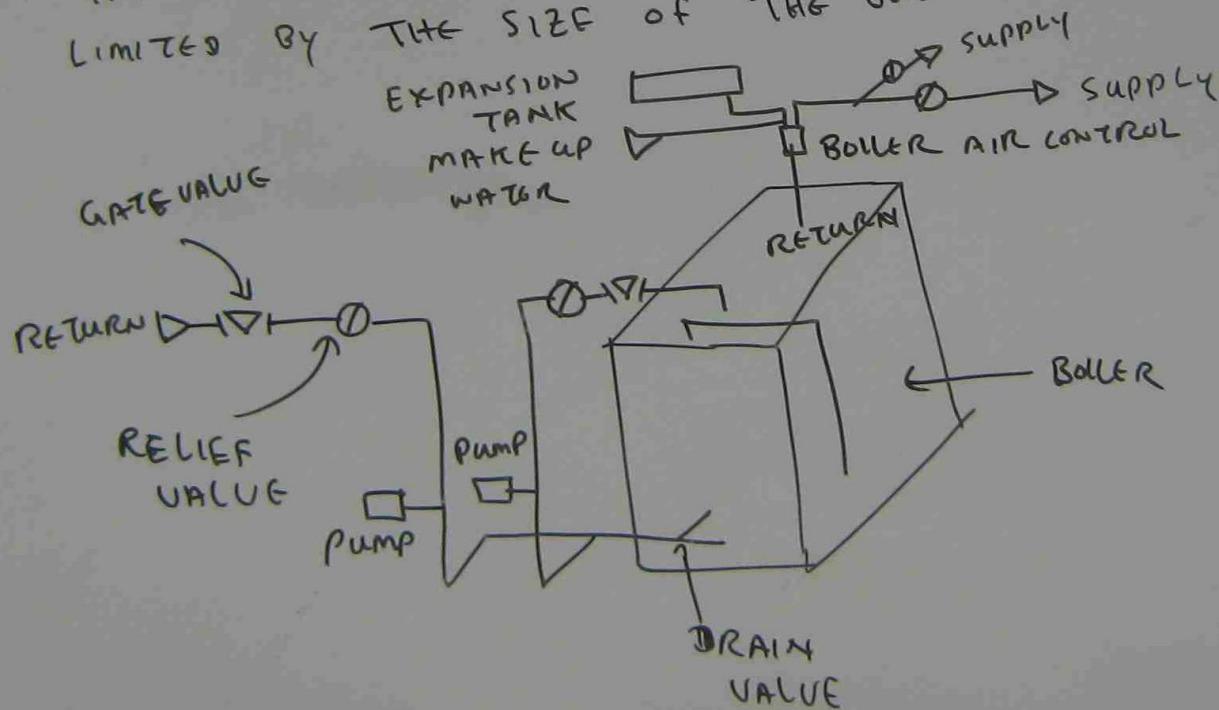 LIMITED BY THE SIZE OF THE
SUPPLY
EXPANSION
TANK
SUPPLY
MAKE UP
WATER
BOILER AIR CONTROL
GATE VALUE
RETURN
RETURN
BOILER
RELIEF
VALUE
PUMP
PUMP
DRAIN
VALUE